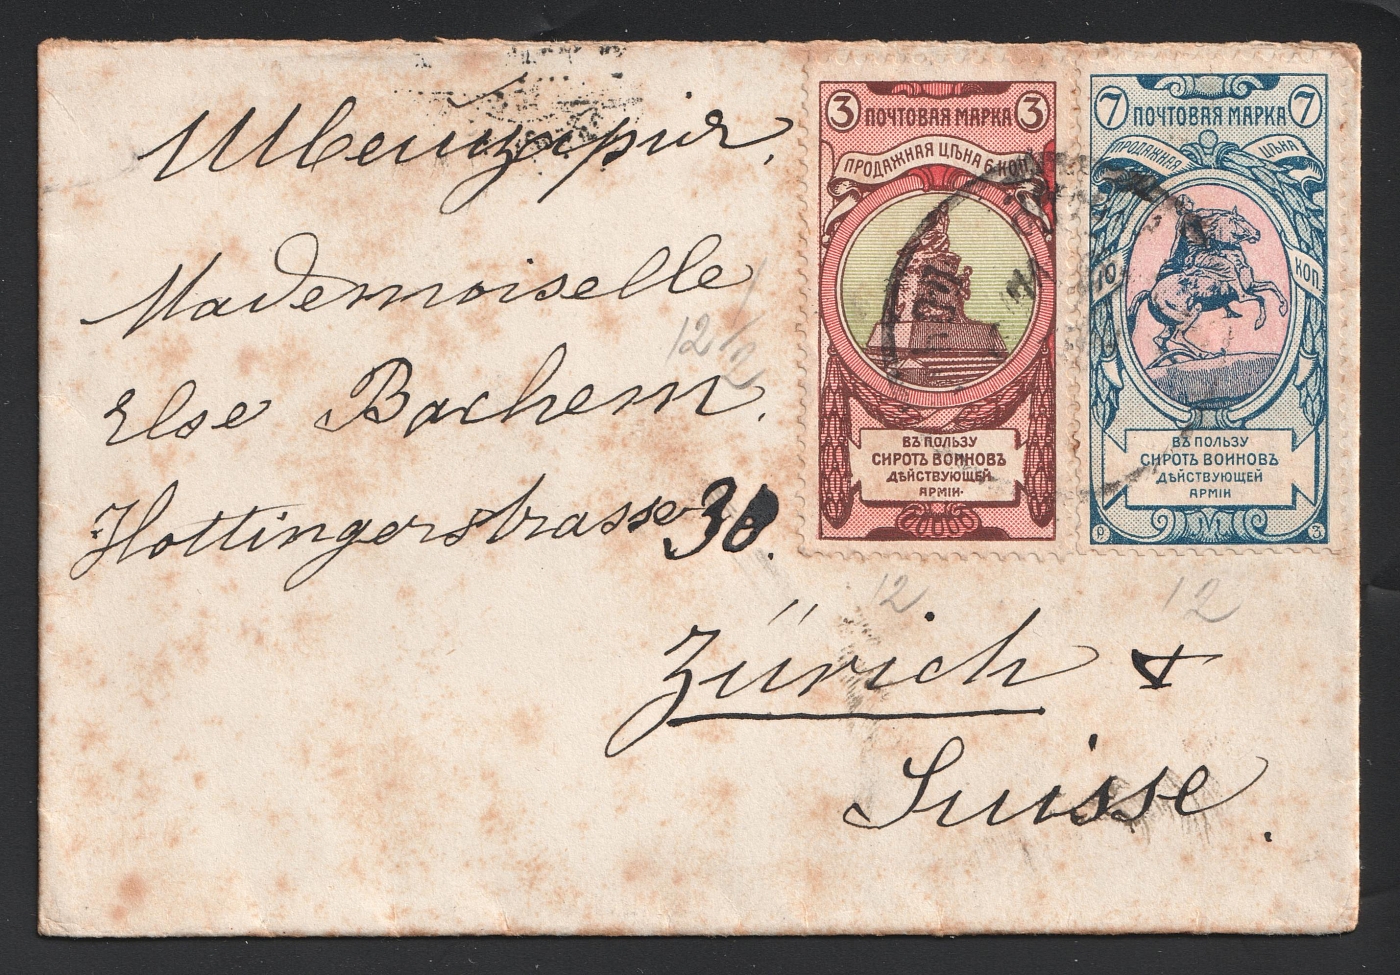 Швейцарія.
Mademoiselle
Else Bachem.
Hottingerstrasse 30.
Zürich V
Suisse.
12/2
3 ПОЧТОВАЯ МАРКА 3
ПРОДАЖНАЯ ЦѢНА 6 КОП.
ВЪ ПОЛЬЗУ
СИРОТЪ ВОИНОВЪ
ДѢЙСТВУЮЩЕЙ
АРМІИ.
7 ПОЧТОВАЯ МАРКА 7
ПРОДАЖНАЯ ЦѢНА
10 КОП.
ВЪ ПОЛЬЗУ
СИРОТЪ ВОИНОВЪ
ДѢЙСТВУЮЩЕЙ
АРМІИ
12
12